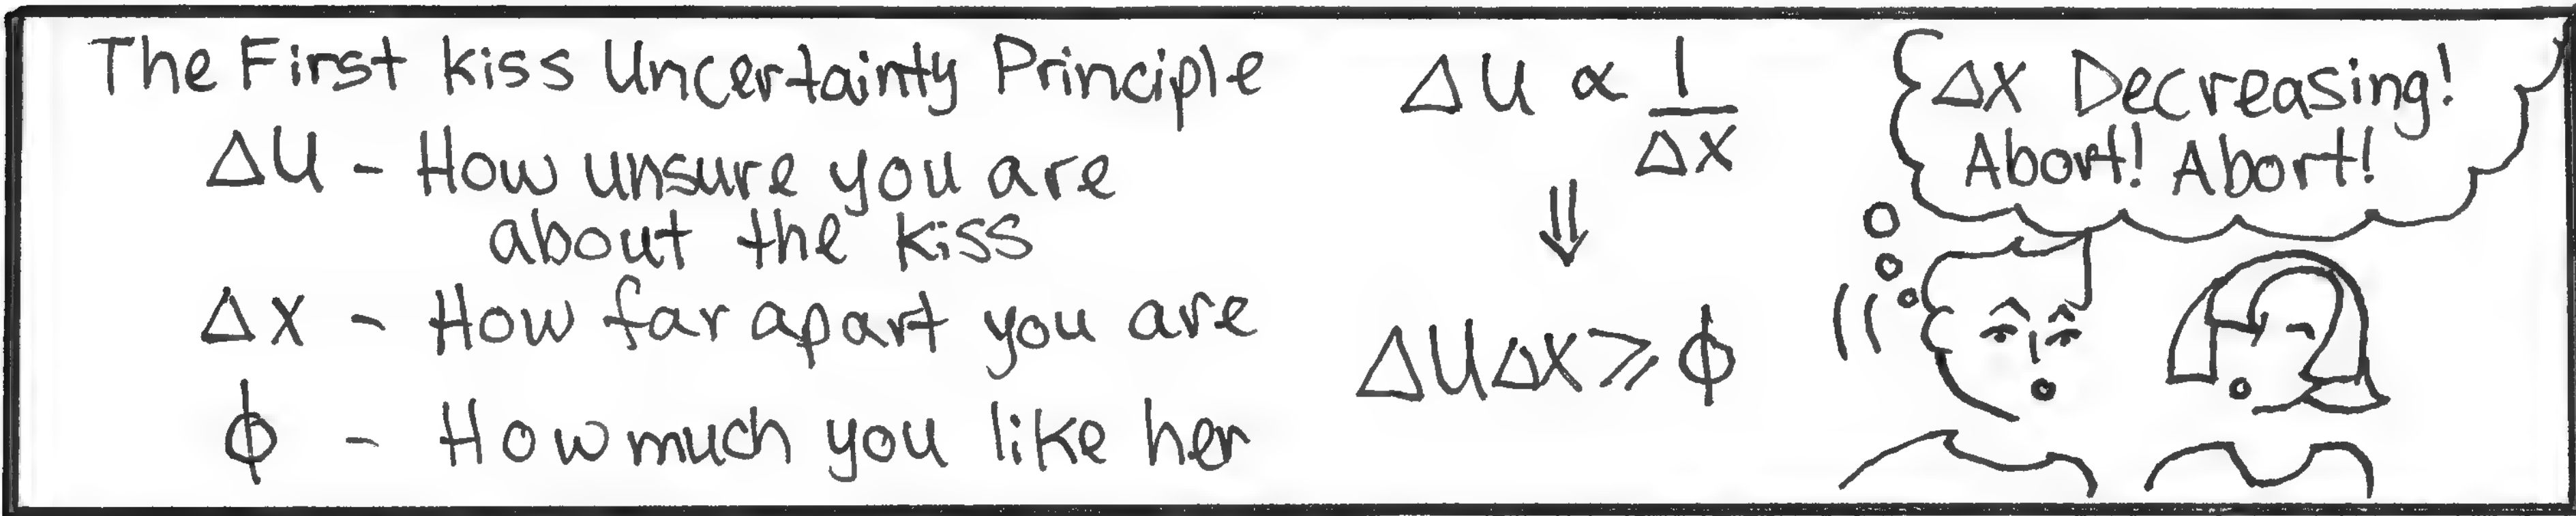 The First Kiss Uncertainty Principle
ΔU - How unsure you are
about the kiss
Δx - How far apart you are
ϕ - How much you like her
ΔU ∝ 1/Δx
⇓
ΔUΔx ⩾ ϕ
Δx Decreasing!
Abort! Abort!